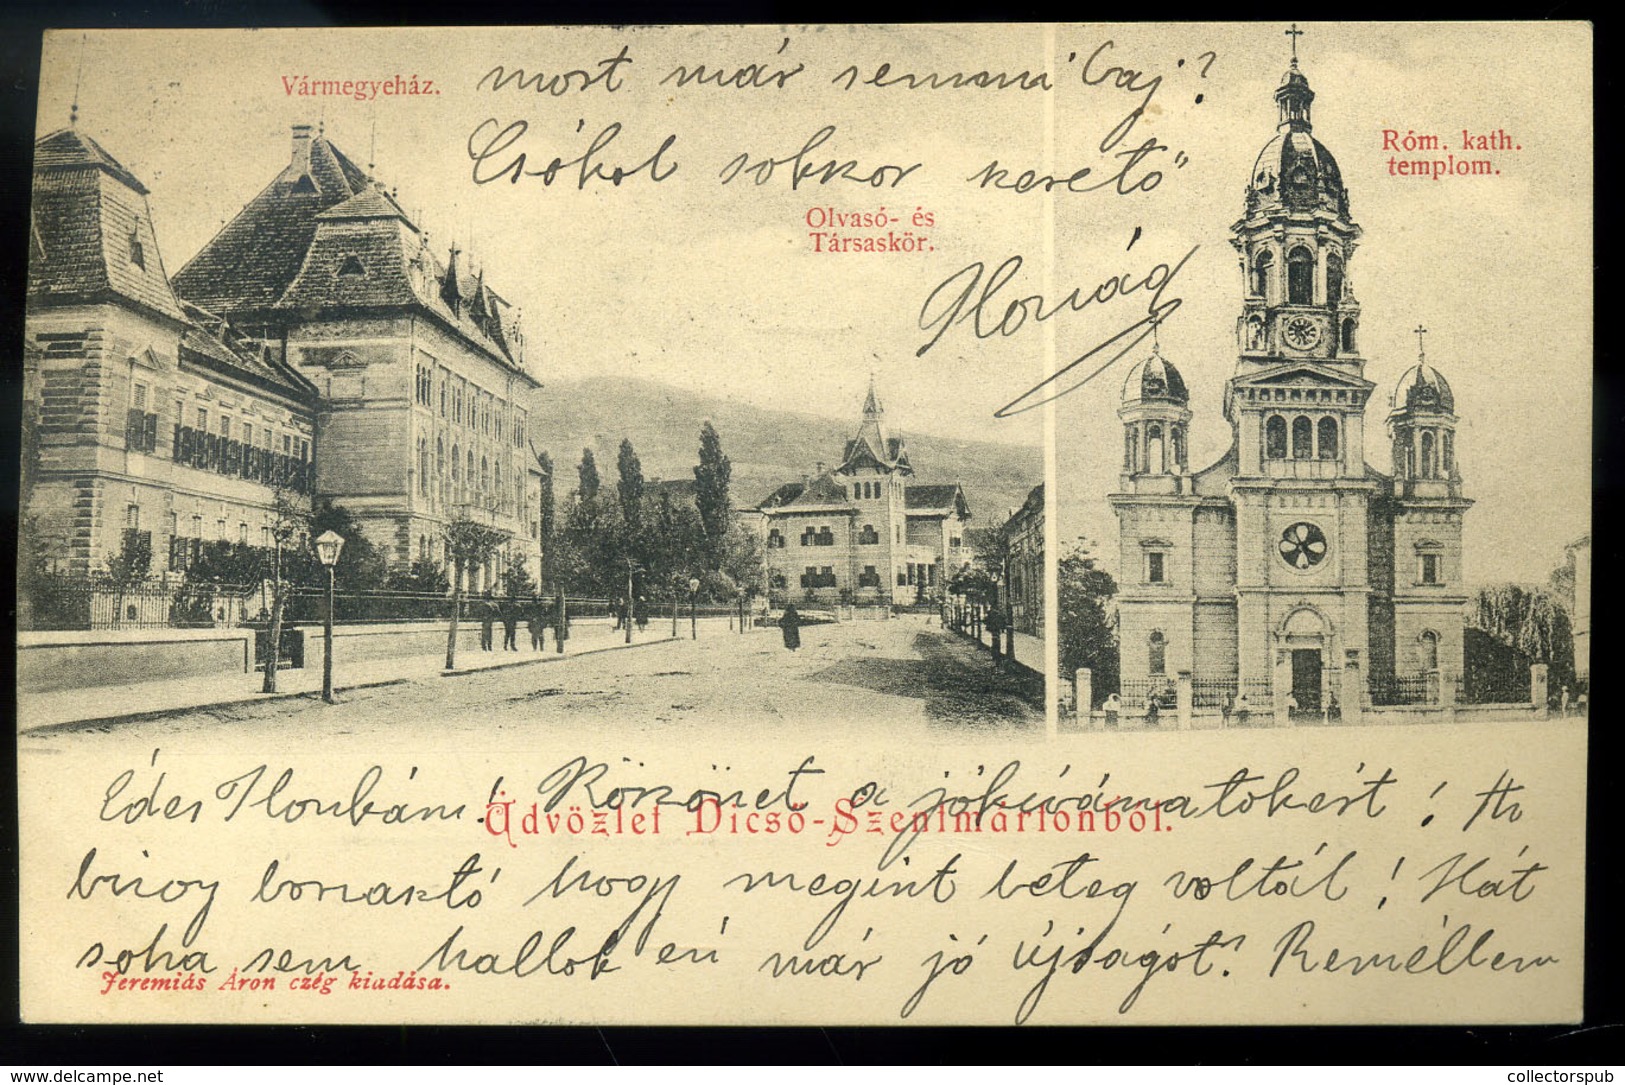 Vármegyeház.
most már semmi baj?
Csókol sokszor szerető
Olvasó- és
Társaskör.
Róm. kath.
templom.
Édes Ilonkám! Köszönet a jókívánatokért!
Üdvözlet Dicső-Szentmártonból.
hogy megint beteg voltál! Hát
soha sem hallok én már jó újságot? Remélem
Jeremiás Áron czég kiadása.
www.delcampe.net
collectorspub